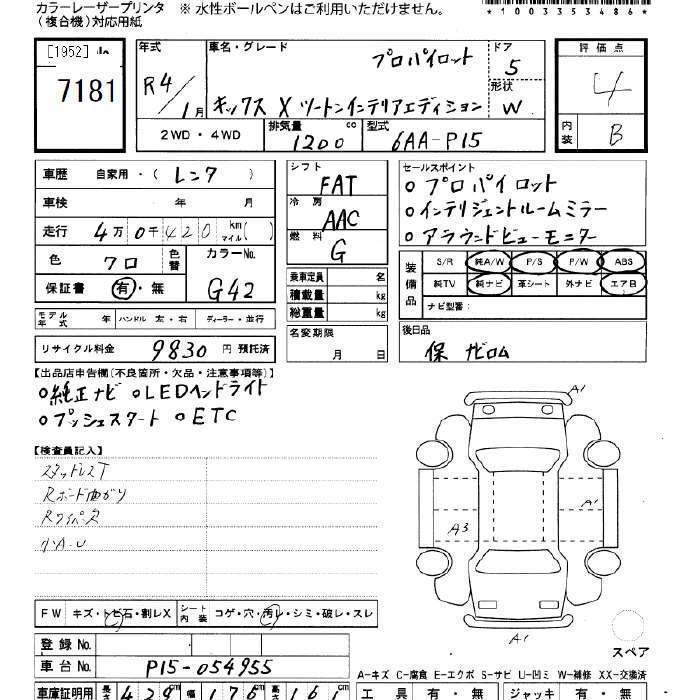 カラーレーザープリンタ ※ 水性ボールペンはご利用いただけません。
(複合機)対応用紙
*1003353486*
[1952]
7181
年式 R4/1月
車名・グレード プロパイロット
キックス X ツートンインテリアエディション
ドア 5
形状 W
評価点 4
内装 B
2WD・4WD 排気量 1200 cc 型式 6AA-P15
車歴 自家用・( レンタ )
車検 年 月
走行 4万0千420 km マイル( )
色 クロ 色替 カラーNo. G42
保証書 有・無
シフト FAT
冷房 AAC
燃料 G
乗車定員 名
積載量 kg
総重量 kg
セールスポイント
○ プロパイロット
○ インテリジェントルームミラー
○ アラウンドビューモニター
装備品 S/R 純A/W P/S P/W ABS
純TV 純ナビ 革シート 外ナビ エアB
ナビ型番:
モデル年式 年 ハンドル 左・右 ディーラー・並行
リサイクル料金 9830 円 預託済
名変期限 月 日
後日品
保 ナビロム
【出品店申告欄(不良箇所・欠品・注意事項等)】
○純正ナビ ○LEDヘッドライト
○プッシュスタート ○ETC
【検査員記入】
スタッドレスT
Rボード曲がり
Rワイパーヌ
小A・U
A1
A1
A3
A1
FW キズ・トビ石・割レX シート内装 コゲ・穴・汚レ・シミ・破レ・スレ
スペア
登録 No.
車台 No. P15-054955
A-キズ C-腐食 E-エクボ S-サビ U-凹ミ W-補修 XX-交換済
車庫証明用 長さ 429cm 幅 176cm 高さ 161
工具 有・無 ジャッキ 有・無